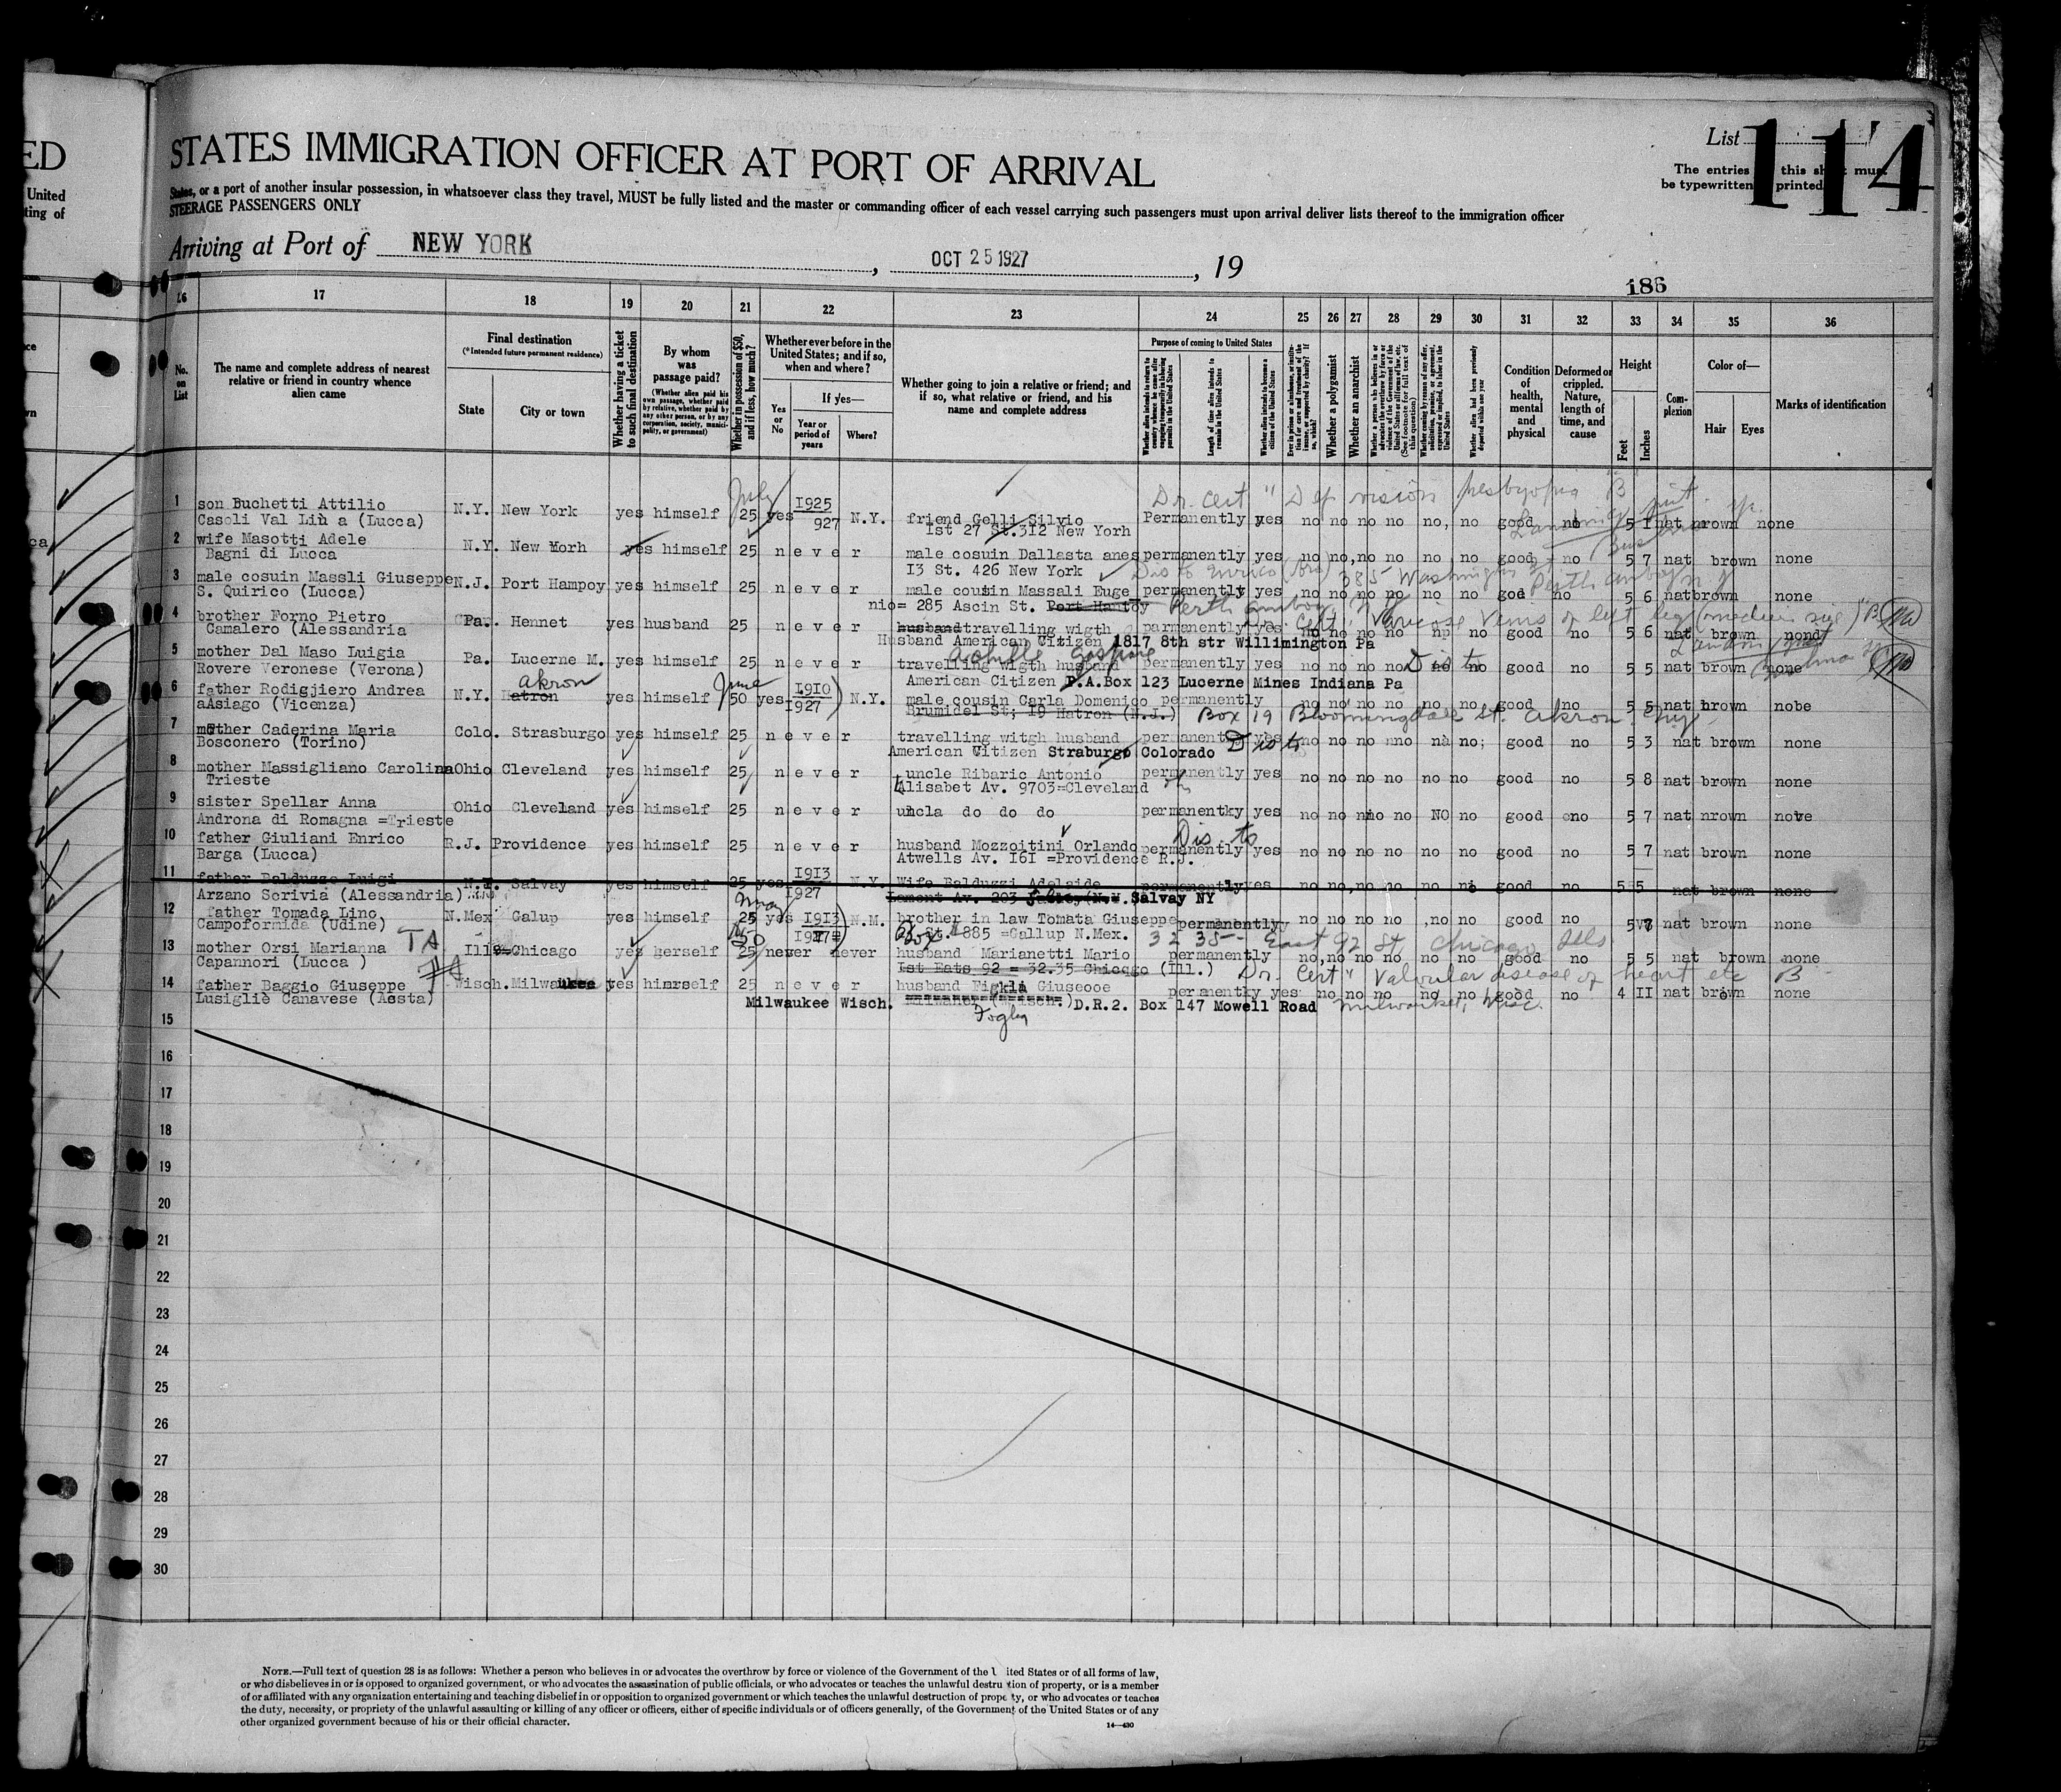 ED
United
ting of
STATES IMMIGRATION OFFICER AT PORT OF ARRIVAL
List
114
The entries this sheet must
be typewritten printed
States, or a port of another insular possession, in whatsoever class they travel, MUST be fully listed and the master or commanding officer of each vessel carrying such passengers must upon arrival deliver lists thereof to the immigration officer
STEERAGE PASSENGERS ONLY
Arriving at Port of NEW YORK , OCT 25 1927 , 19
186
16 17 18 19 20 21 22 23 24 25 26 27 28 29 30 31 32 33 34 35 36
No. on List
The name and complete address of nearest relative or friend in country whence alien came
Final destination
(*Intended future permanent residence)
State
City or town
Whether having a ticket to such final destination
By whom was passage paid?
(Whether alien paid his own passage, whether paid by relative, whether paid by any other person, or by any corporation, society, municipality, or government)
Whether in possession of $50, and if less, how much?
Whether ever before in the United States; and if so, when and where?
If yes—
Yes or No
Year or period of years
Where?
Whether going to join a relative or friend; and if so, what relative or friend, and his name and complete address
Purpose of coming to United States
Length of time alien intends to remain in the United States
Whether alien intends to become a citizen of the United States
Whether a polygamist
Whether an anarchist
Condition of health, mental and physical
Deformed or crippled. Nature, length of time, and cause
Height
Feet
Inches
Complexion
Color of—
Hair
Eyes
Marks of identification
Dr. Cert " Def vision presbyopia B
July
1 son Buchetti Attilio N.Y. New York yes himself 25 yes 1925 927 N.Y. friend Gelli Silvio Permanently yes no no no no no, no good no 5 1 nat nrown none
Casoli Val Liù a (Lucca) Ist 27 St.312 New Yorh
2 wife Masotti Adele N.Y. New Yorh yes himself 25 n e v e r male cosuin Dallasta anes permanently yes no no,no no no no good no 5 7 nat brown none
Bagni di Lucca I3 St. 426 New York
Dis to Enrico (bro) 385 Washington St Perth Amboy N.J
3 male cosuin Massli Giuseppe N.J. Port Hampoy yes himself 25 n e v e r male cousin Massali Euge permanently yes no no no no no no god no 5 6 nat brown none
S. Quirico (Lucca) nio= 285 Ascin St. Port Hamtoy Perth Amboy, N.J
Dr. Cert. " Varicose Veins of left leg (medium size) " B
4 brother Forno Pietro Pa. Hennet yes husband 25 n e v e r husband travelling wigth parmanently yes no no no no np no good no 5 6 nat brown nond
Camalero (Alessandria Husband American Citizen 1817 8th str Willimington Pa
Achille Gaspare
5 mother Dal Maso Luigia Pa. Lucerne M. yes himself 25 n e v e r travelling wigth husband permanently yes no no no no no no good no 5 5 nat brown none
Rovere Veronese (Verona) American Citizen P.A.Box 123 Lucerne Mines Indiana Pa
Akron
June
6 father Rodigjiero Andrea N.Y. Hatron yes himself 50 yes 1910 1927 N.Y. male cousin Carla Domenico permanently no no no no no no good no 5 5 nat brown nobe
aAsiago (Vicenza) Brumidel St; I9 Hatron (N.J.) Box 19 Bloomingdale St. Akron N.y.
7 mother Caderina Maria Colo. Strasburgo yes himself 25 n e v e r travelling witgh husband permanently yes no no no no no no; good no 5 3 nat brown none
Bosconero (Torino) American Citizen Straburgo Colorado Dis to
8 mother Massigliano Carolina Ohio Cleveland yes himself 25 n e v e r uncle Ribaric Antonio permanently yes no no no no no no good no 5 8 nat brown none
Trieste Alisabet Av. 9703=Cleveland
9 sister Spellar Anna Ohio Cleveland yes himself 25 n e v e r uncla do do do permanentky yes no no no no NO no good no 5 7 nat nrown none
Androna di Romagna =Trieste
Dis. to
10 father Giuliani Enrico R.J. Providence yes himself 25 n e v e r husband Mozzoitini Orlando permanently yes no no no no no no good no 5 7 nat brown none
Barga (Lucca) Atwells Av. I6I =Providence R.J.
11 father Balduzzo Luigi N.Y. Salvay yes himself 25 yes 1913 1927 N.Y. Wife Balduzzi Adelaide permanently yes no no,no no no no good no 5 5 nat brown none
Arzano Scrivia (Alessandria) Lamont Av. 203 Salvay NY
May
12 father Tomada Lino N.Mex Galup yes himself 25 yes 1913 1927 N.M. brother in law Tomata Giuseppe permanently no no no no ,no no good no 5 8 nat brown none
Campoformida (Udine) Box 885 =Gallup N.Mex.
3235- East 92 St. Chicago Ills
TA
13 mother Orsi Marianna Ills Chicago yes gerself 25 never never husband Marianetti Mario permanently no,no,no no no no good no 5 5 nat brown none
Capannori (Lucca ) Ist Eats 92 = 32.35 Chicago (Ill.)
Dr. Cert " Valvular disease of heart etc B
14 father Baggio Giuseppe Wisch. Milwaukee yes himrself 25 n e v e r husband Figlia Giuseooe permanently yes no no no no no no good no 4 II nat brown none
Lusigliè Canavese (Aosta) Milwaukee Wisch. D.R.2. Box 147 Mowell Road Milwaukee, Wisc.
Foglia
15
16
17
18
19
20
21
22
23
24
25
26
27
28
29
30
NOTE.—Full text of question 28 is as follows: Whether a person who believes in or advocates the overthrow by force or violence of the Government of the United States or of all forms of law,
or who disbelieves in or is opposed to organized government, or who advocates the assassination of public officials, or who advocates or teaches the unlawful destruction of property, or is a member
of or affiliated with any organization entertaining and teaching disbelief in or opposition to organized government or which teaches the unlawful destruction of property, or who advocates or teaches
the duty, necessity, or propriety of the unlawful assaulting or killing of any officer or officers, either of specific individuals or of officers generally, of the Government of the United States or of any
other organized government because of his or their official character.
14—430